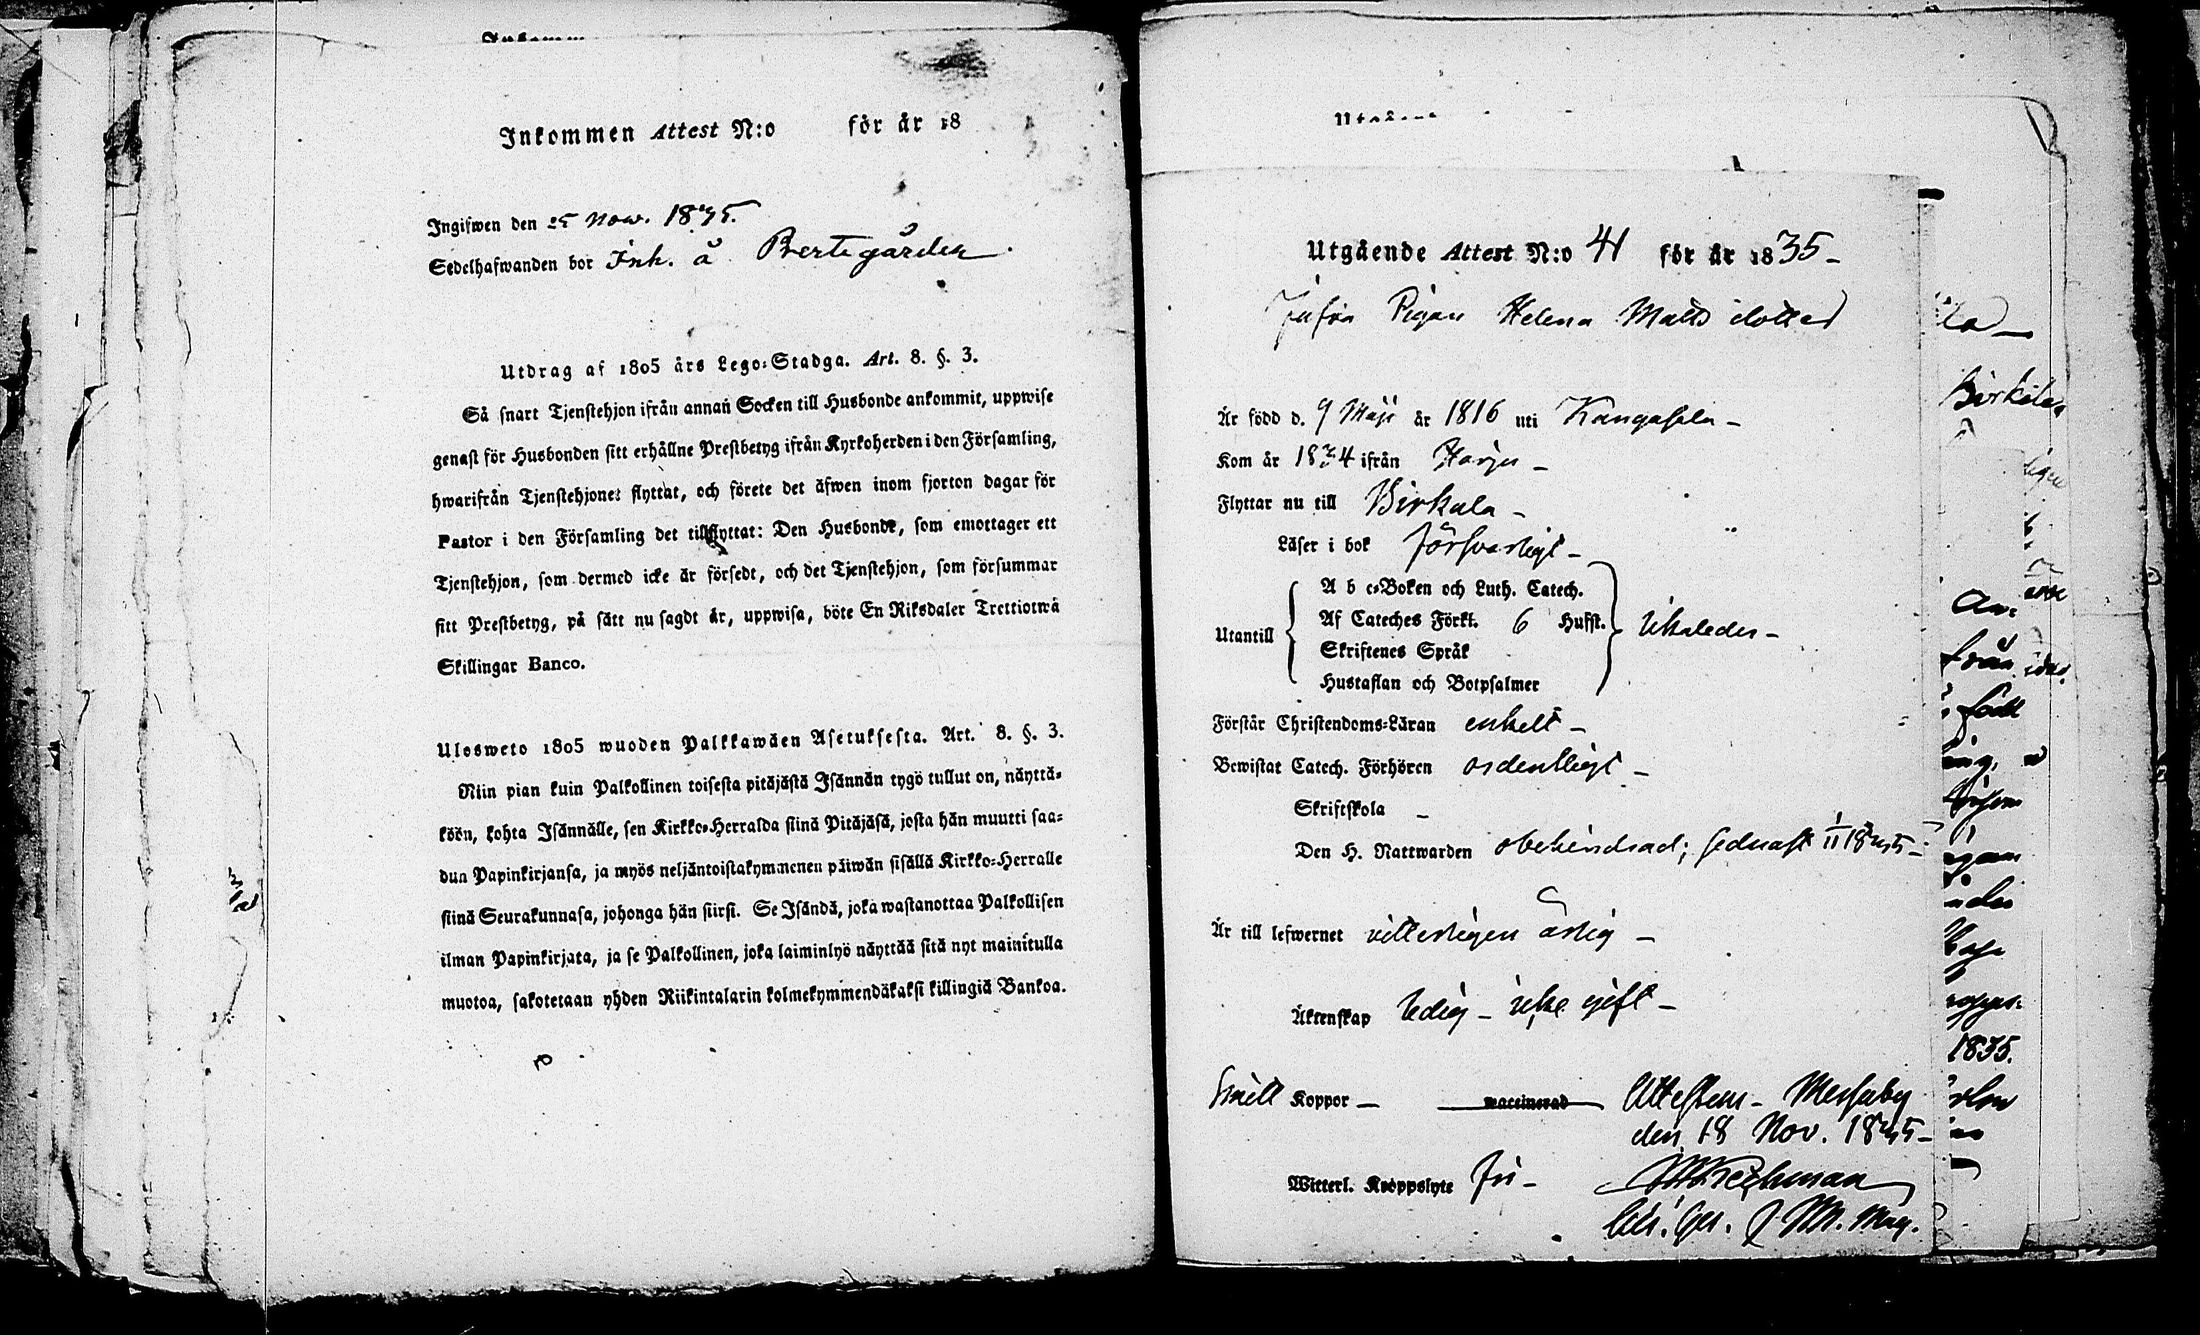 Inkommen Attest N:o för år 18
Ingifwen den 25 Now. 1835.
Sedelhafwanden bor Inh. å Bertegården.
Utdrag af 1805 års Lego-Stadga. Art. 8. §. 3.
Så snart Tjenstehjon ifrån annan Socken till Husbonde ankommit, uppwise
genast för Husbonden sitt erhållne Prestbetyg ifrån Kyrkoherden i den Församling,
hwarifrån Tjenstehjonet flyttat, och förete det äfwen inom fjorton dagar för
Pastor i den Församling det tillflyttat: Den Husbonde, som emottager ett
Tjenstehjon, som dermed icke är försedt, och det Tjenstehjon, som försummar
sitt Prestbetyg, på sätt nu sagdt är, uppwisa, böte En Riksdaler Trettiotwå
Skillingar Banco.
Ulosweto 1805 wuoden Palkkawäen Asetuksesta. Art. 8. §. 3.
Niin pian kuin Palkollinen toisesta pitäjästä Isännän tygö tullut on, näyttä-
köön, kohta Isännälle, sen Kirkko-Herralda siinä Pitäjäsä, josta hän muutti saa-
dun Papinkirjansa, ja myös neljäntoistakymmenen päiwän sisällä Kirkko-Herralle
siinä Seurakunnasa, johonga hän siirsi. Se Isändä, joka wastanottaa Palkollisen
ilman Papinkirjata, ja se Palkollinen, joka laiminlyö näyttää sitä nyt mainitulla
muotoa, sakotetaan yhden Riikintalarin kolmekymmendäkaksi killingiä Bankoa.
Utgående Attest N:o 41 för år 1835 -
Pigan Helena Matts dotter
Är född d. 9 Maji år 1816 uti Kangasala -
Kom år 1834 ifrån Harju -
Flyttar nu till Birkala -
Läser i bok försvarligt -
Utantill
A b c-Boken och Luth. Catech.
Af Cateches Förkl. 6 Hufst.
Skriftenes Språk
Hustaflan och Botpsalmer
Förstår Christendoms-Läran enkelt -
Bewistat Catech. Förhören ordentligt -
Skriftskola -
Den H. Nattwarden obehindrad; sednast 1/11 1835 -
Är till lefwernet vitterligen ärlig -
Äktenskap ledig - icke gift -
Koppor - waccinerad
Attestera - Messuby
den 18 Nov. 1835 -
Witterl. Kroppslyte fri -